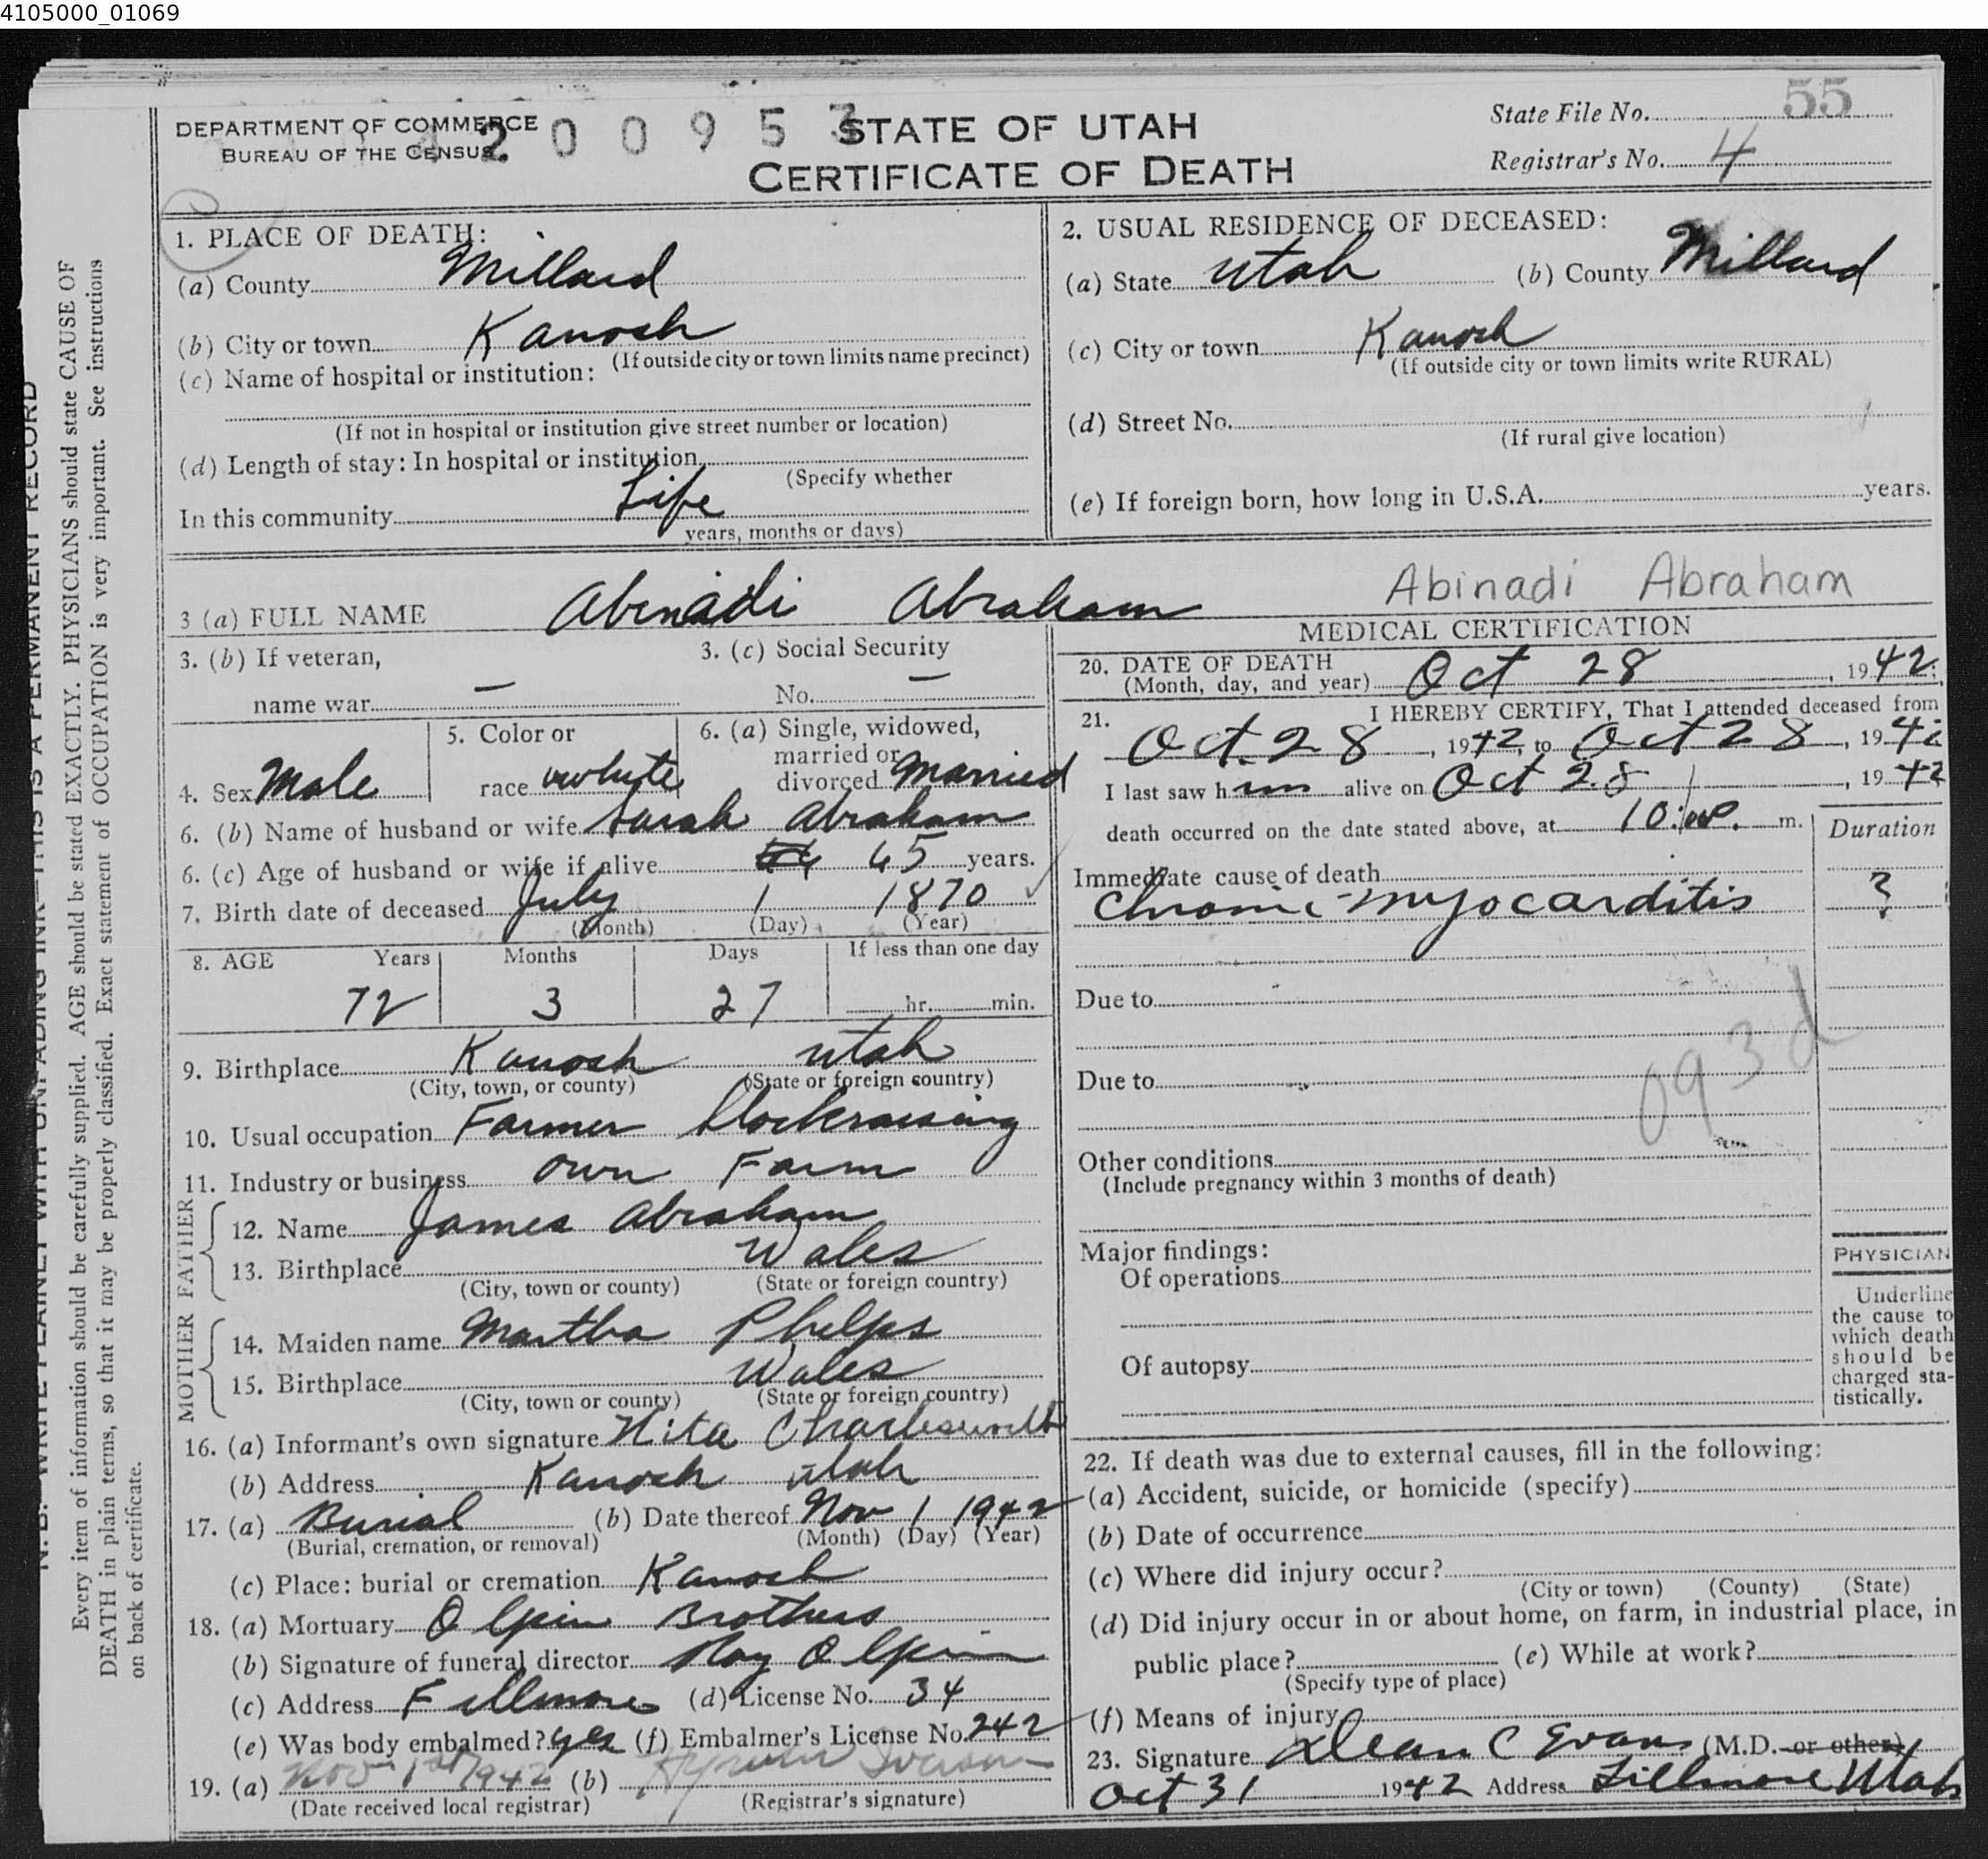 4105000_01069
DEPARTMENT OF COMMERCE
BUREAU OF THE CENSUS
2 0 0 9 5 3
STATE OF UTAH
CERTIFICATE OF DEATH
State File No. 55
Registrar's No. 4
1. PLACE OF DEATH:
(a) County Millard
(b) City or town Kanosh
(If outside city or town limits name precinct)
(c) Name of hospital or institution:
(If not in hospital or institution give street number or location)
(d) Length of stay: In hospital or institution
(Specify whether
In this community Life
years, months or days)
2. USUAL RESIDENCE OF DECEASED:
(a) State Utah (b) County Millard
(c) City or town Kanosh
(If outside city or town limits write RURAL)
(d) Street No.
(If rural give location)
(e) If foreign born, how long in U.S.A. years.
3 (a) FULL NAME Abinadi Abraham Abinadi Abraham
3. (b) If veteran,
name war —
3. (c) Social Security
No. —
4. Sex Male
5. Color or
race white
6. (a) Single, widowed,
married or
divorced married
6. (b) Name of husband or wife Sarah Abraham
6. (c) Age of husband or wife if alive 65 years.
7. Birth date of deceased July 1 1870
(Month) (Day) (Year)
8. AGE Years Months Days If less than one day
72 3 27 hr. min.
9. Birthplace Kanosh Utah
(City, town, or county) (State or foreign country)
10. Usual occupation Farmer Stockraising
11. Industry or business own Farm
FATHER
12. Name James Abraham
13. Birthplace Wales
(City, town or county) (State or foreign country)
MOTHER
14. Maiden name Martha Phelps
15. Birthplace Wales
(City, town or county) (State or foreign country)
16. (a) Informant's own signature Nita Charlesworth
(b) Address Kanosh Utah
17. (a) Burial (b) Date thereof Nov 1 1942
(Burial, cremation, or removal) (Month) (Day) (Year)
(c) Place: burial or cremation Kanosh
18. (a) Mortuary Olpin Brothers
(b) Signature of funeral director Roy Olpin
(c) Address Fillmore (d) License No. 34
(e) Was body embalmed? yes (f) Embalmer's License No. 242
19. (a) Nov 1st 1942 (b) Iverson
(Date received local registrar) (Registrar's signature)
MEDICAL CERTIFICATION
20. DATE OF DEATH
(Month, day, and year) Oct 28, 1942.
21. I HEREBY CERTIFY, That I attended deceased from
Oct. 28, 1942, to Oct 28, 1942
I last saw him alive on Oct 28, 1942
death occurred on the date stated above, at 10: m.
Duration
Immediate cause of death
Chronic myocarditis ?
Due to
Due to
093d
Other conditions
(Include pregnancy within 3 months of death)
Major findings:
Of operations
Of autopsy
PHYSICIAN
Underline
the cause to
which death
should be
charged sta-
tistically.
22. If death was due to external causes, fill in the following:
(a) Accident, suicide, or homicide (specify)
(b) Date of occurrence
(c) Where did injury occur?
(City or town) (County) (State)
(d) Did injury occur in or about home, on farm, in industrial place, in
public place? (e) While at work?
(Specify type of place)
(f) Means of injury
23. Signature Dean C Evans (M.D. or other)
Oct 31 1942 Address Fillmore Utah
N. B. WRITE PLAINLY WITH UNFADING INK—THIS IS A PERMANENT RECORD
Every item of information should be carefully supplied. AGE should be stated EXACTLY. PHYSICIANS should state CAUSE OF
DEATH in plain terms, so that it may be properly classified. Exact statement of OCCUPATION is very important. See instructions
on back of certificate.